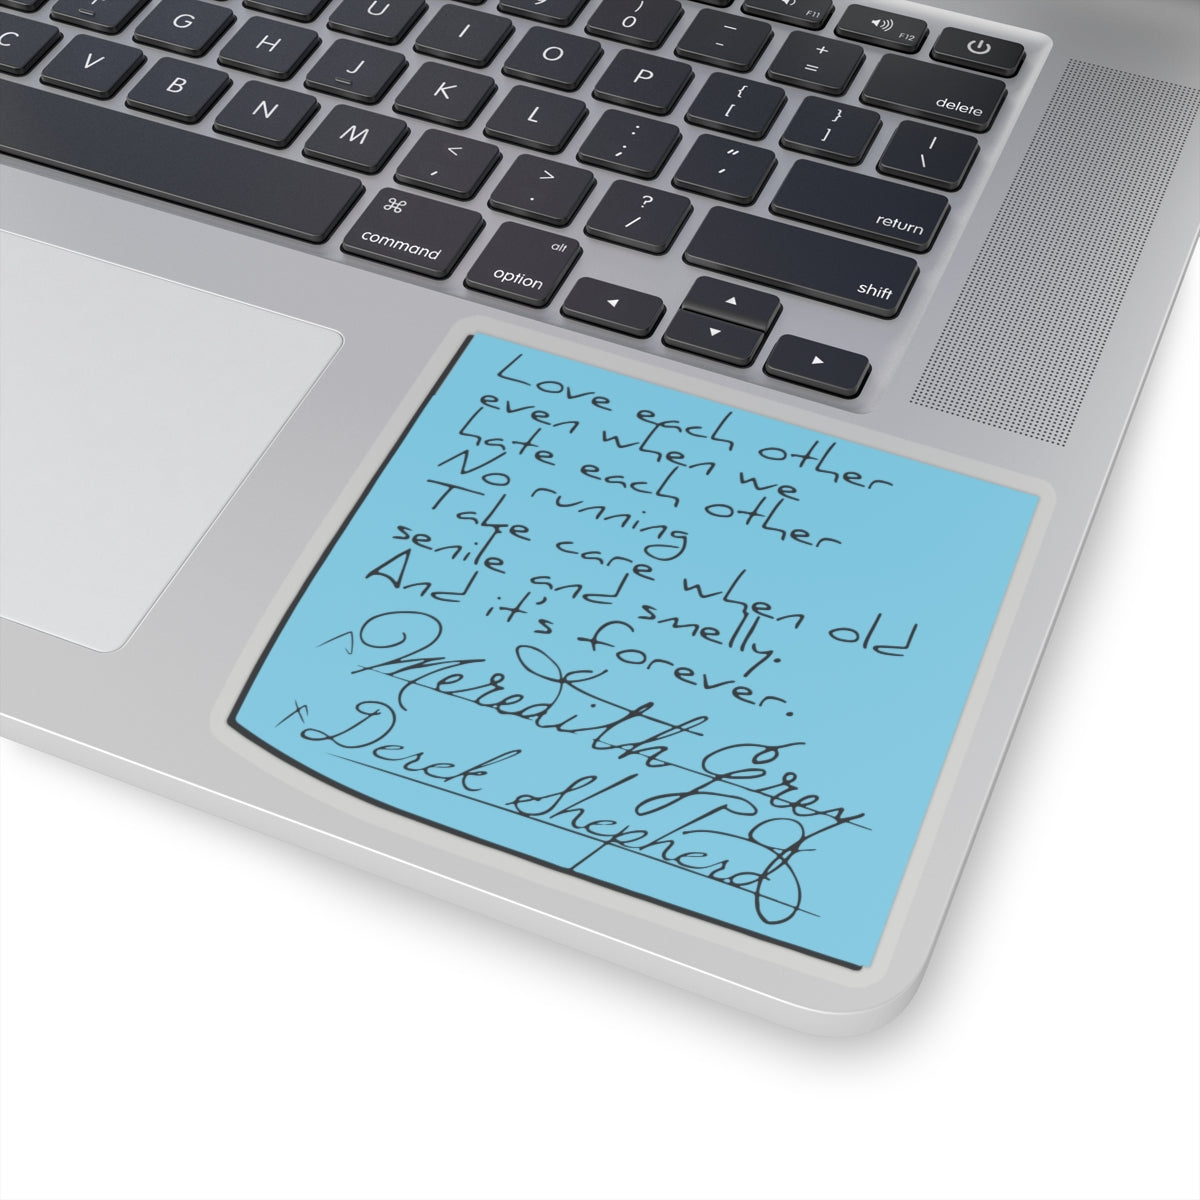 F11
F12
delete
G
U
9
)
0
_
-
+
=
C
H
I
O
P
{
[
}
]
|
\
V
J
K
L
:
;
"
'
return
B
N
M
<
,
>
.
?
/
shift
⌘
command
alt
option
◀
▲
▼
▶
Love each other
even when we
hate each other
No running
Take care when old
senile and smelly.
And it's forever.
Meredith Grey
x Derek Shepherd